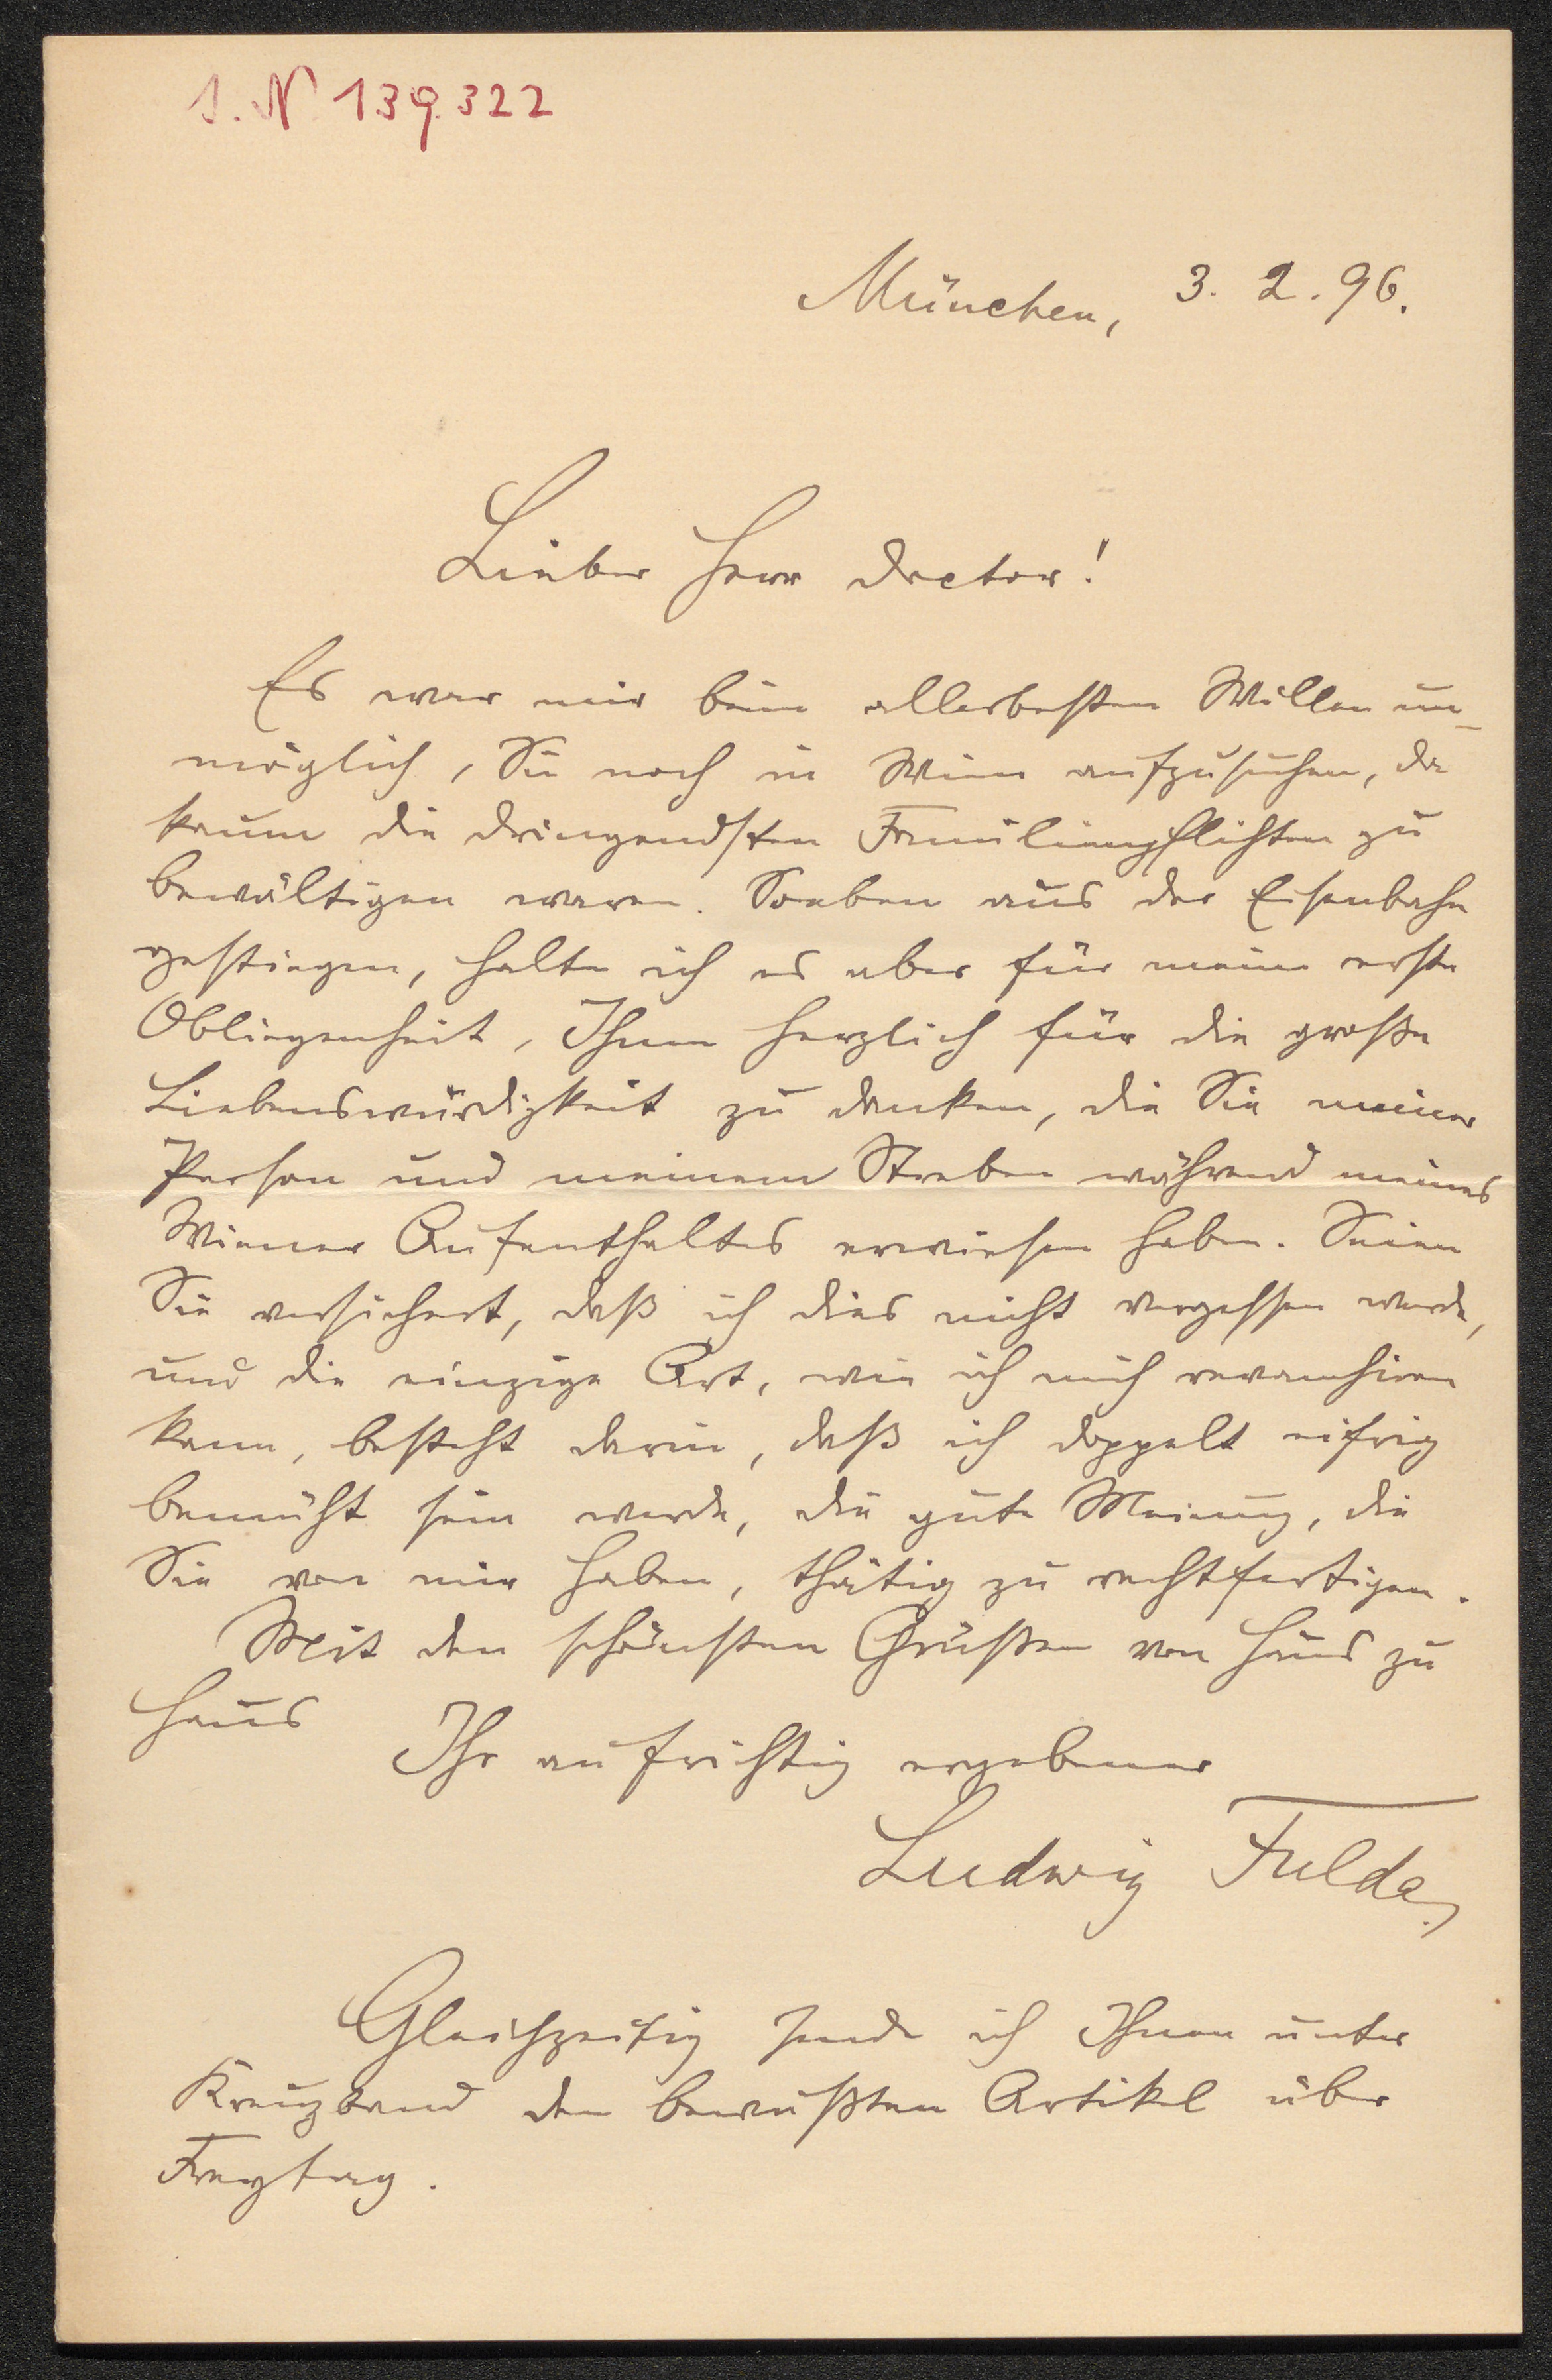 I. N 139.322
München, 3. 2. 96.
Lieber Herr Doctor!
Es war mir beim allerbesten Willen un-
möglich, Sie noch in Wien aufzusuchen, da
kaum die dringendsten Familienpflichten zu
bewältigen waren. Soeben aus der Eisenbahn
gestiegen, halte ich es aber für meine erste
Obliegenheit, Ihnen herzlich für die große
Liebenswürdigkeit zu danken, die Sie meiner
Person und meinem Streben während meines
Wiener Aufenthaltes erwiesen haben. Seien
Sie versichert, daß ich dies nicht vergessen werde,
und die einzige Art, wie ich mich revanchiren
kann, besteht darin, daß ich doppelt eifrig
bemüht sein werde, die gute Meinung, die
Sie von mir haben, thätig zu rechtfertigen.
Mit den schönsten Grüßen von Haus zu
Haus
Ihr aufrichtig ergebener
Ludwig Fulda.
Gleichzeitig sende ich Ihnen unter
Kreuzband den bewußten Artikel über
Freytag.